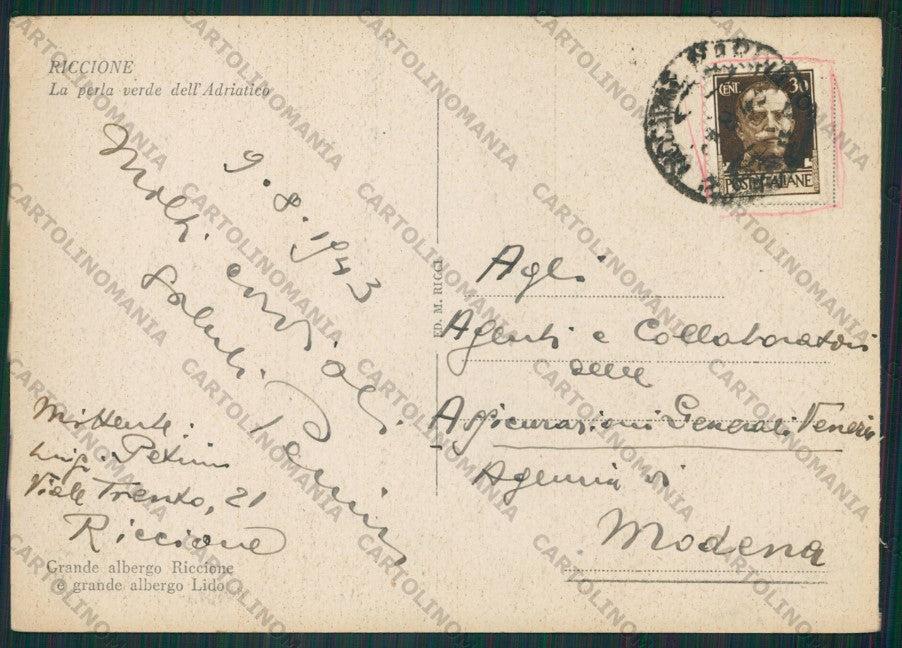 RICCIONE
La perla verde dell'Adriatico
9.8.1943
Molti cordiali
saluti.
Mittente:
Luigi
Viale Trento, 21
Riccione
Grande albergo Riccione
e grande albergo Lido
ED. M. RICCI
CENT. 30
POSTE ITALIANE
Agli
Agenti e Collaboratori
delle
Assicurazioni Generali Venezia
Agenzia di
Modena
CARTOLINOMANIA